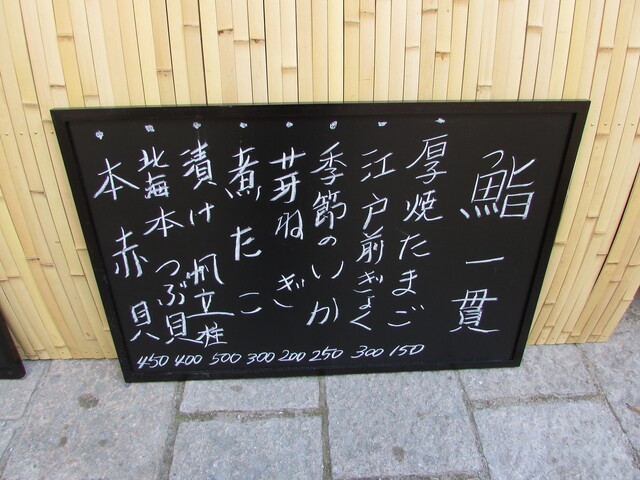 鮨一貫
厚焼たまご 150
江戸前ぎょく 300
季節のいか 250
芽ねぎ 200
煮たこ 300
漬け帆立柱 500
北海本つぶ貝 400
本赤貝 450